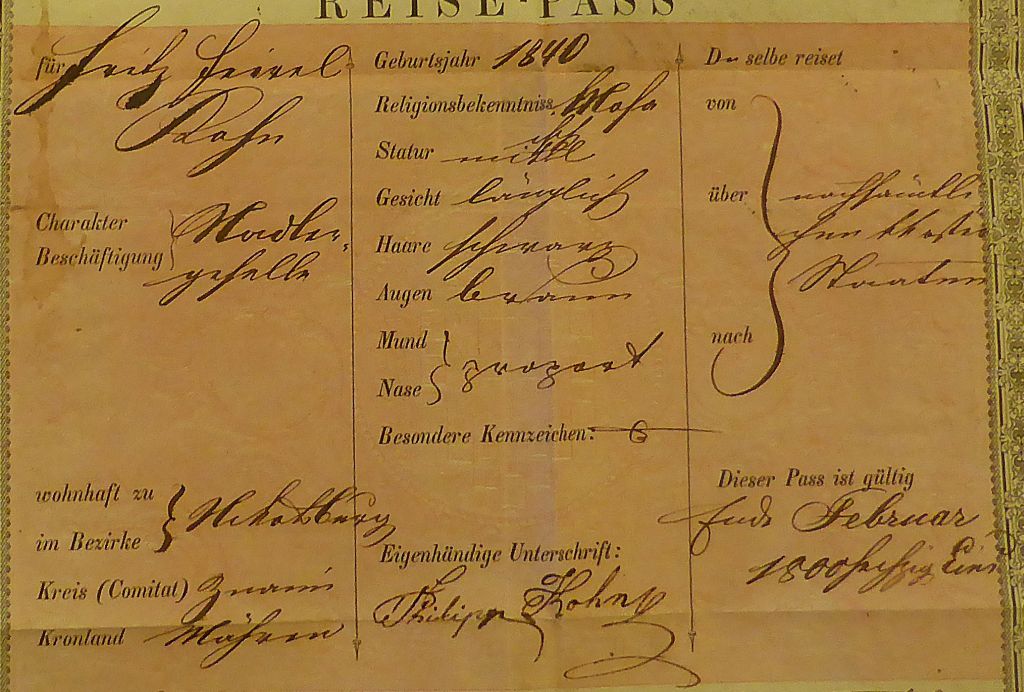 REISE-PASS
für Fritz Feivel
Kohn
Charakter
Beschäftigung
Nadler-
geselle
wohnhaft zu
im Bezirke
Nikolsburg
Kreis (Comitat) Znaim
Kronland Mähren
Geburtsjahr 1840
Religionsbekenntniss Mosa
Statur mittel
Gesicht länglich
Haare schwarz
Augen braun
Mund
Nase
proport
Besondere Kennzeichen:
Eigenhändige Unterschrift:
Philipp Kohn
Derselbe reiset
von
über
nach
Staaten
Dieser Pass ist gültig
Ende Februar
1800 sechzig Eins